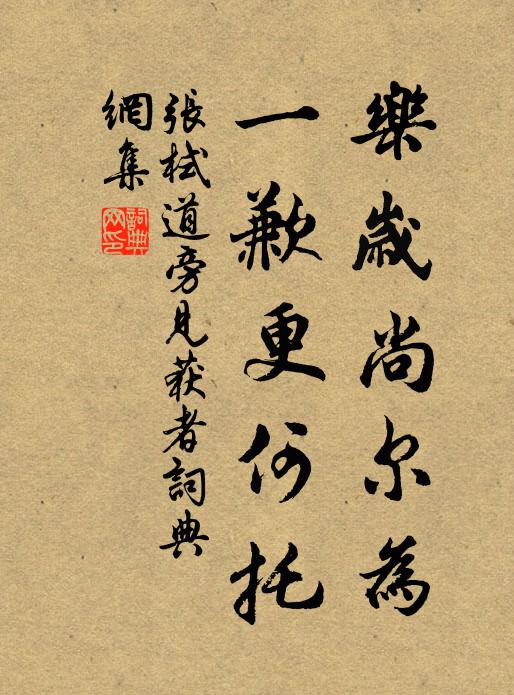 樂歲尚尔為
一歉更何托
張栻道旁見获者詞典
網集
詞典網印